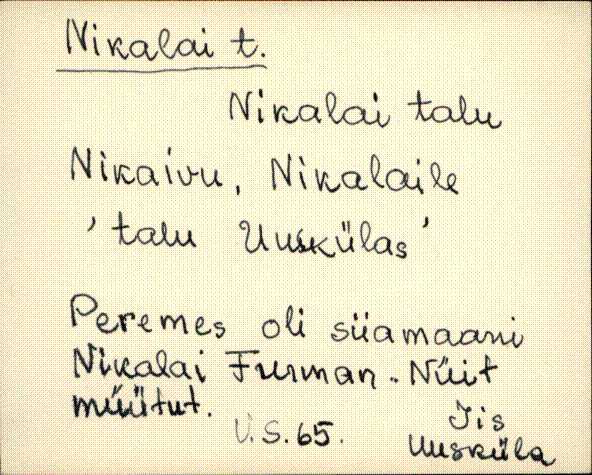 Nikalai t.
Nikalai talu
Nikaivu, Nikalaile
'talu Uuskülas'
Peremes oli siiamaani
Nikalai Furman. Nüit
müütut.
V.S.65. Jis
Uusküla